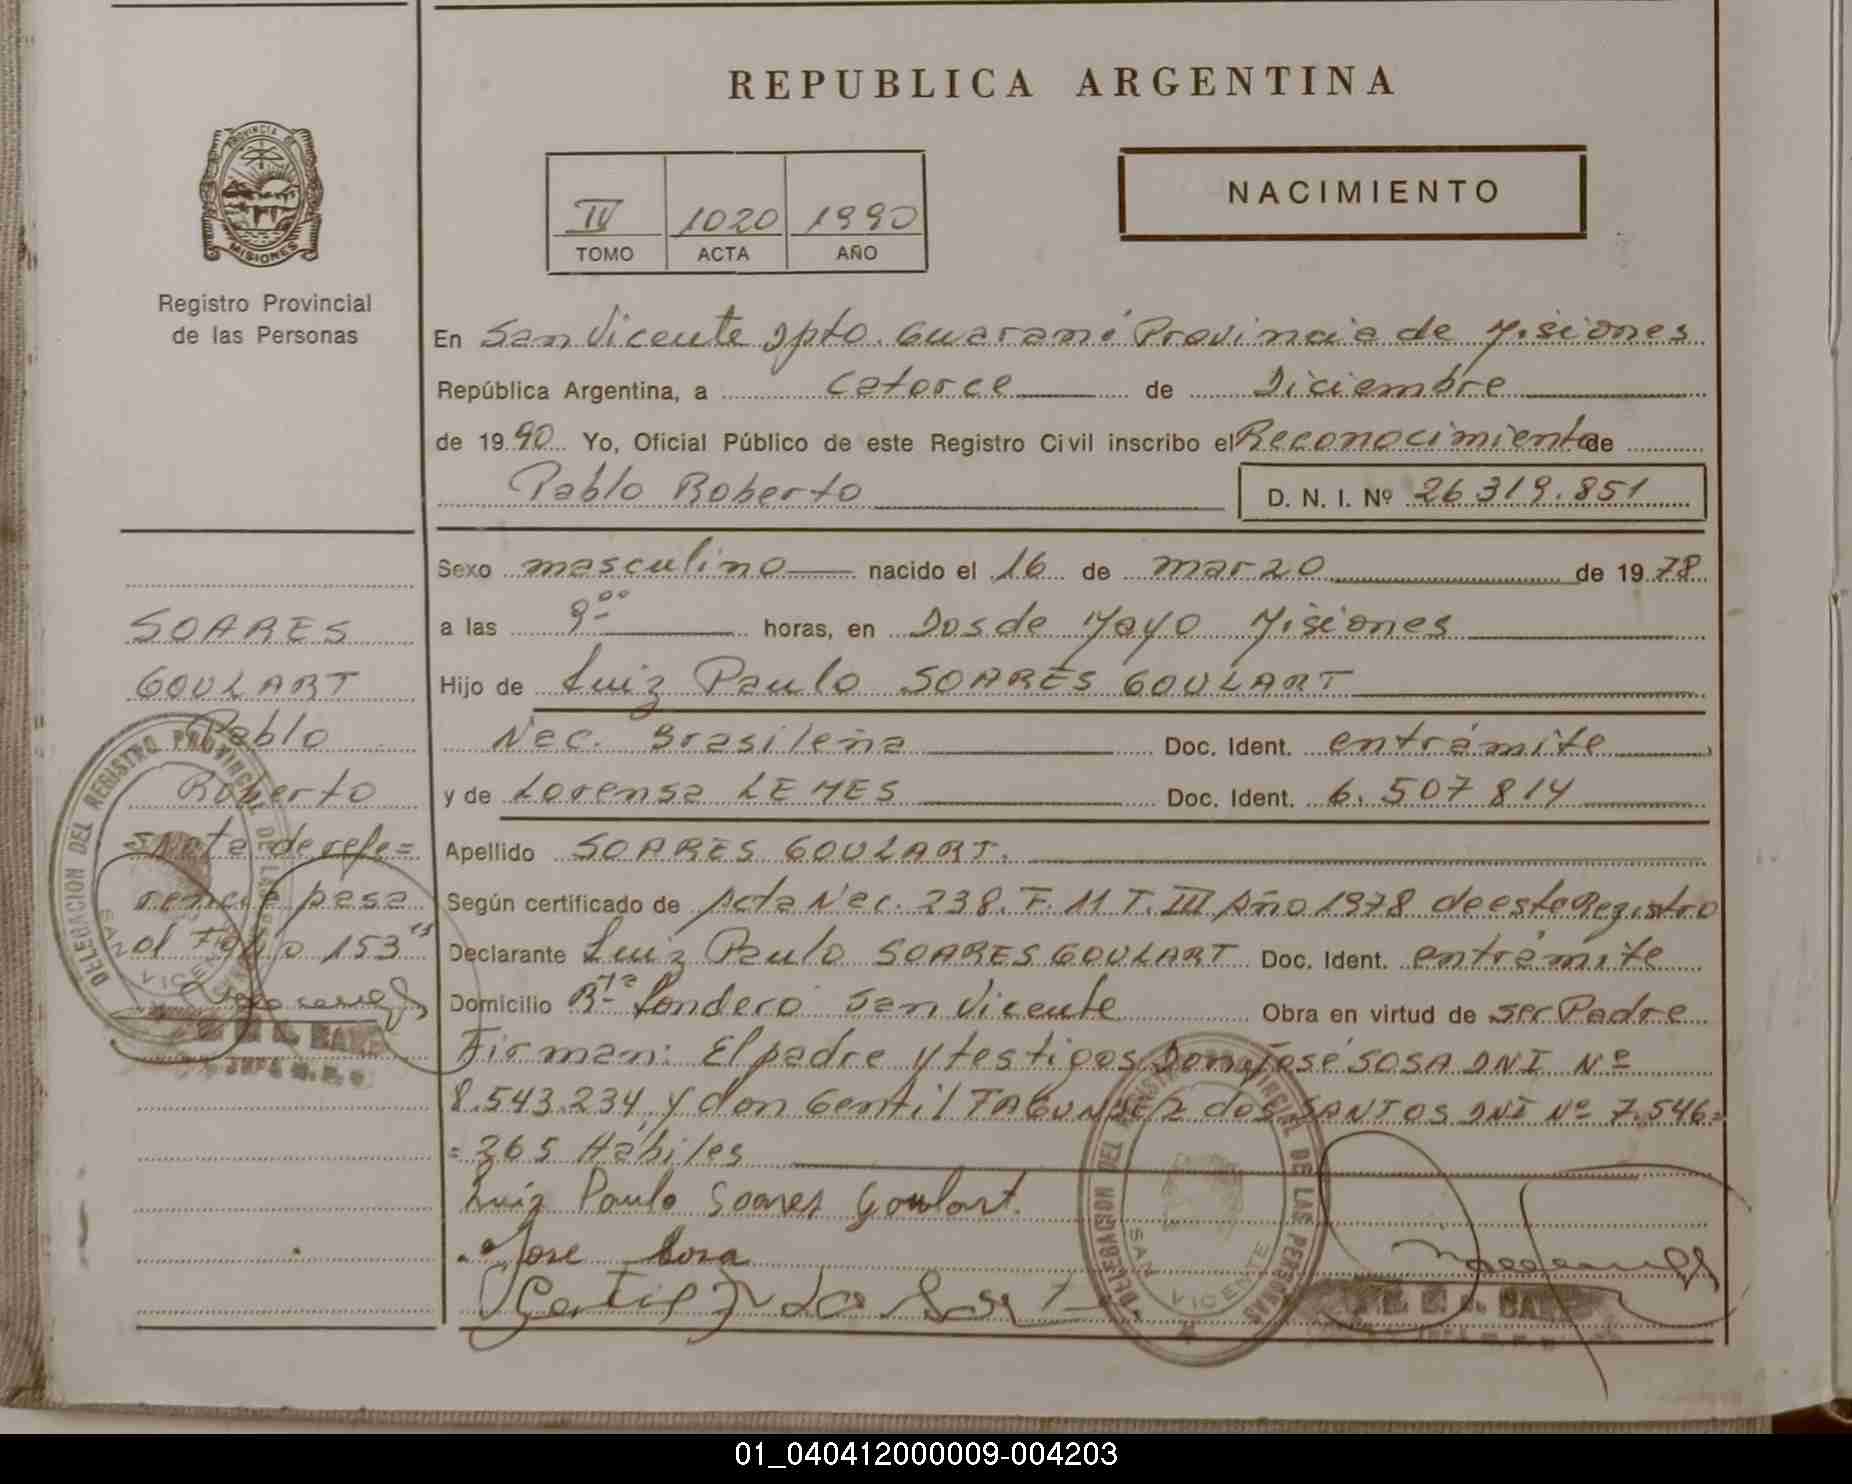 REPUBLICA ARGENTINA
PROVINCIA DE
MISIONES
Registro Provincial
de las Personas
IV 1020 1990
TOMO ACTA AÑO
NACIMIENTO
En San Vicente Dpto. Guaraní Provincia de Misiones
República Argentina, a Catorce de Diciembre
de 1990 Yo, Oficial Público de este Registro Civil inscribo el Reconocimiento de
Pablo Roberto D. N. I. Nº 26.319.851
Sexo masculino nacido el 16 de marzo de 1978
a las 9-00 horas, en Dos de Mayo Misiones
Hijo de Luiz Paulo SOARES GOULART
Nac. Brasileña Doc. Ident. entrámite
y de Lorensa LEMES Doc. Ident. 6.507 814
Apellido SOARES GOULART.
Según certificado de Acta Nac. 238. F. 11 T. III Año 1978 de este Registro
Declarante Luiz Paulo SOARES GOULART Doc. Ident. entrámite
Domicilio Bº Londero San Vicente Obra en virtud de ser Padre
Firman: El padre y testigos Don José SOSA DNI Nº
8.543.234, y don Gentil dos SANTOS DNI Nº 7.546=
=265 Hábiles
Luiz Paulo Soares Goulart.
Jose Sosa
SOARES
GOULART
Pablo
Roberto
Nota de refe=
rencia pasa
al Folio 153
DELEGACION DEL REGISTRO PROVINCIAL DE LAS PERSONAS
SAN VICENTE
DELEGACION DEL REGISTRO PROVINCIAL DE LAS PERSONAS
SAN VICENTE
01_040412000009-004203